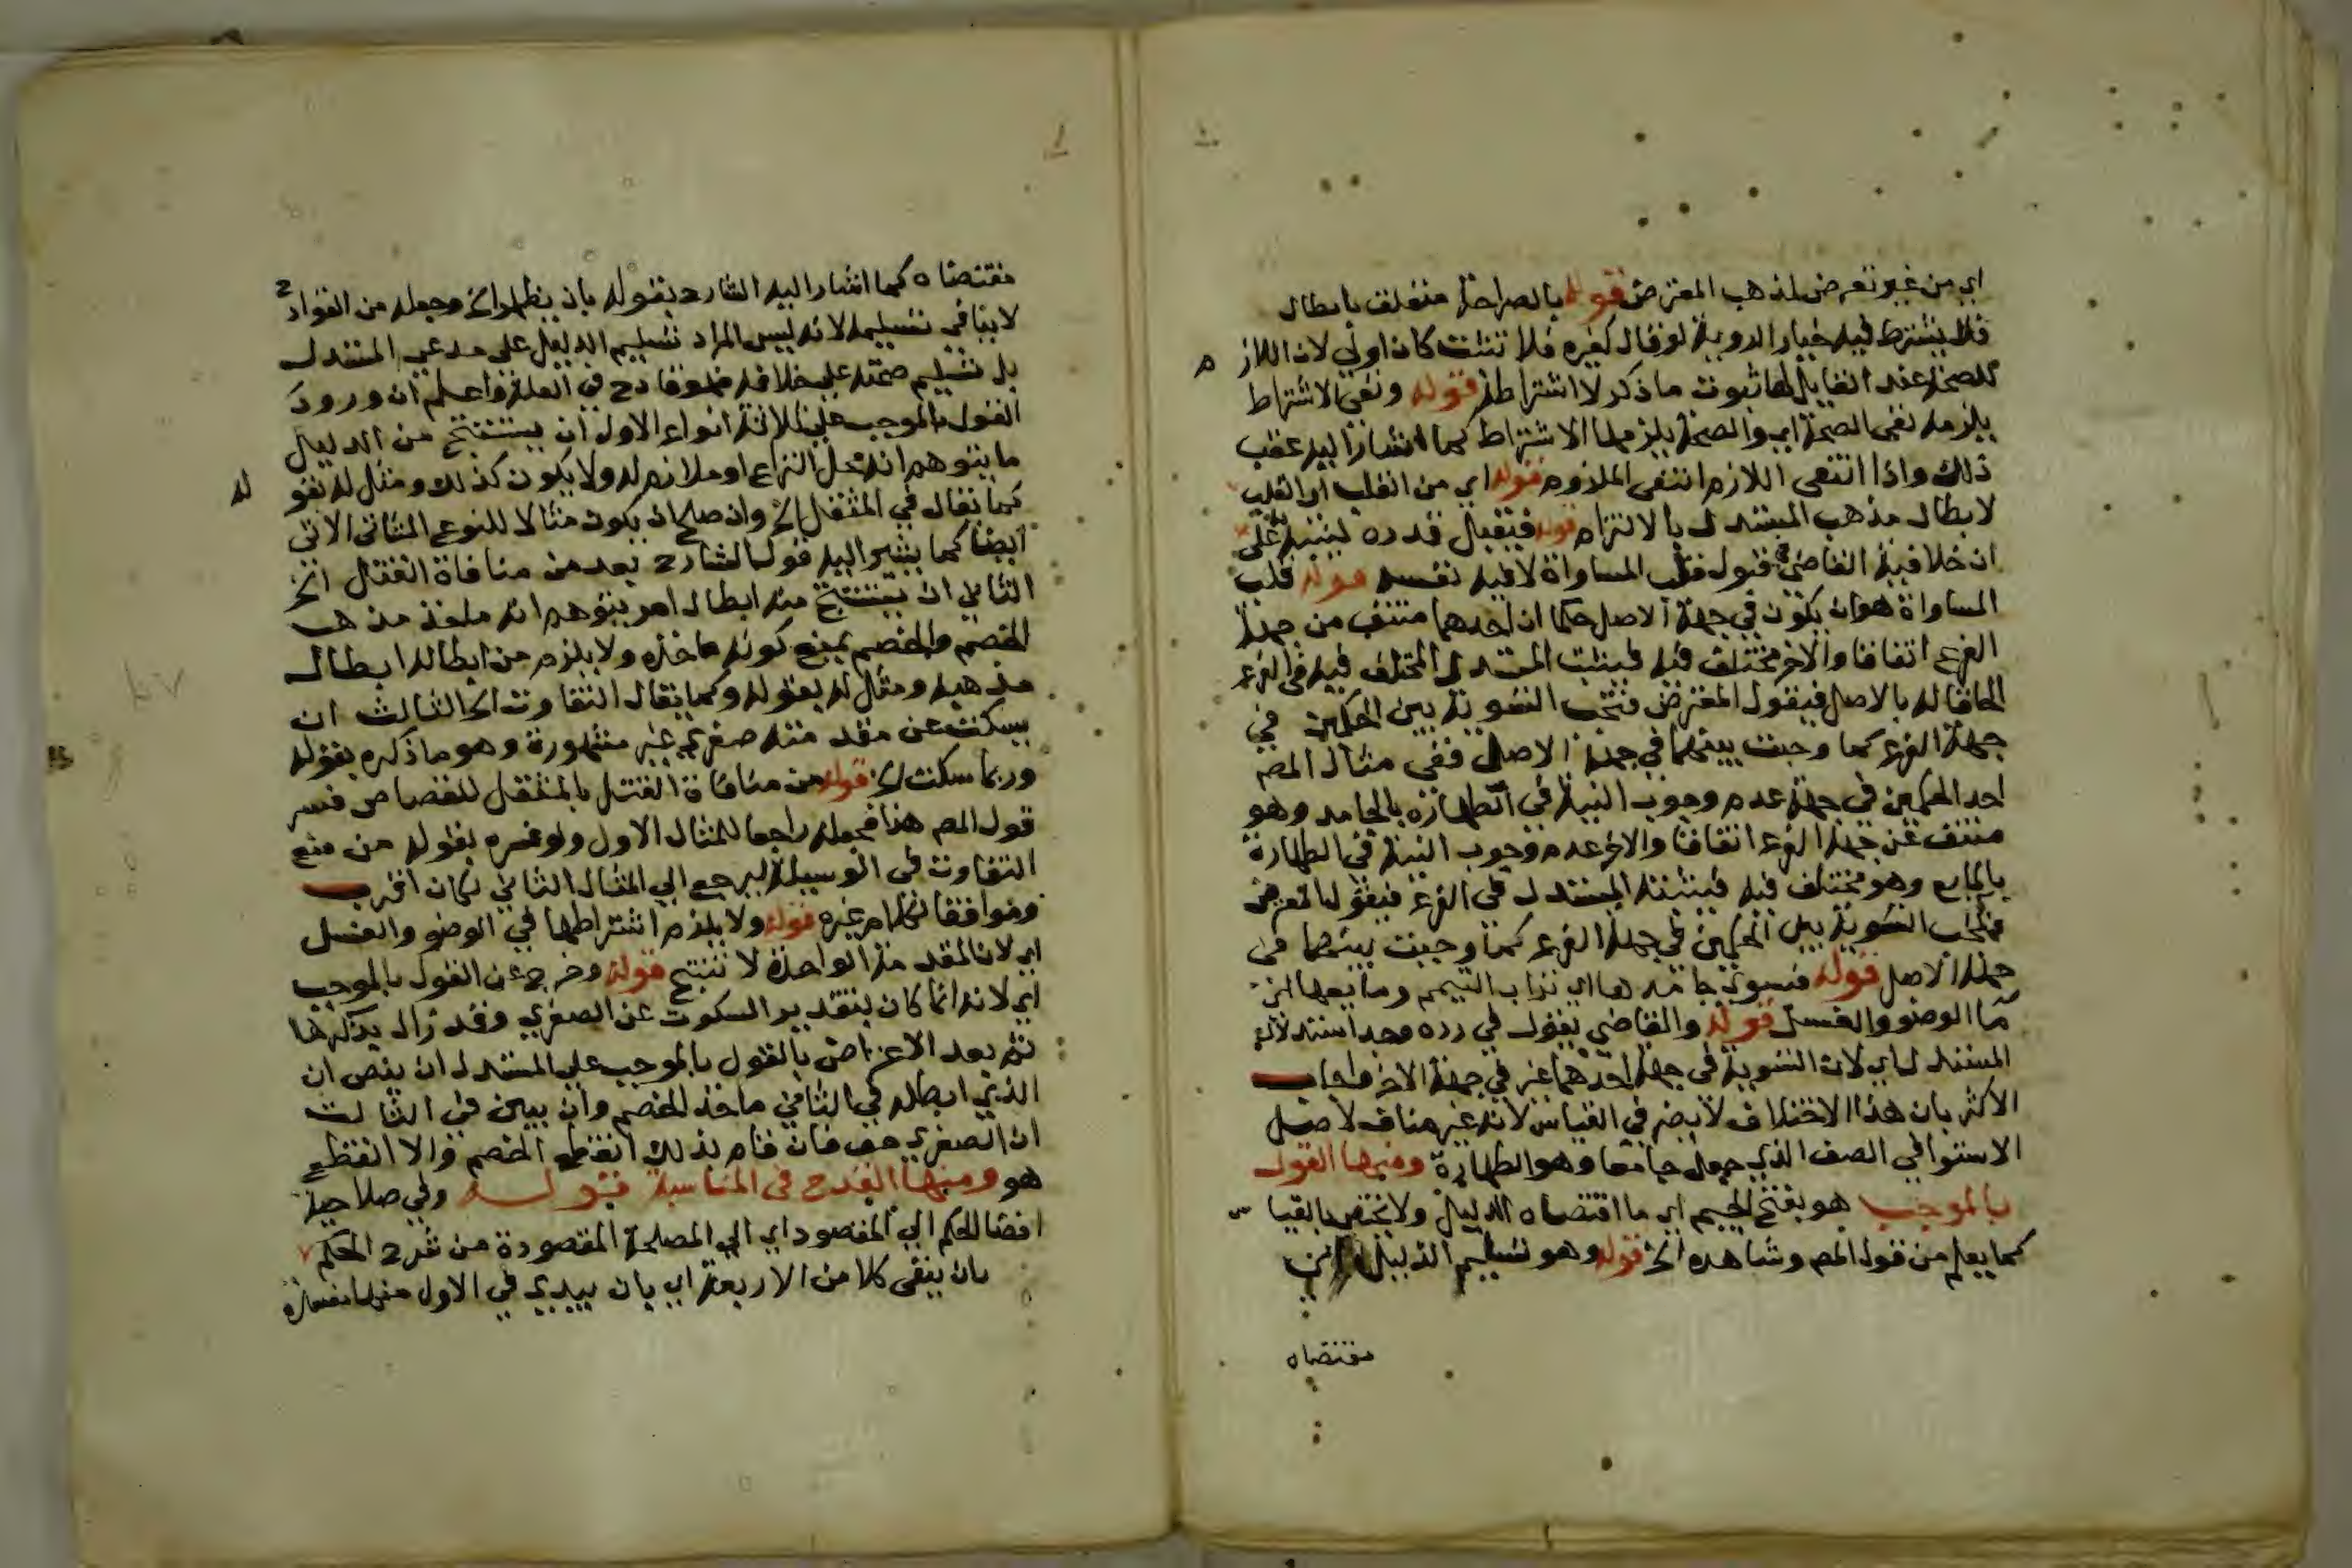 اي من غير تعرض لمذهب المعترض قوله بالصراحة متعلق بابطال
فلا يشترط فيه خيار الروية لو قال كغيره فلا تثبت كان اولي لان اللازم
للصحة عند القايل لها ثبوت ما ذكر لا اشتراطه قوله ونفي الاشتراط
يلزمه نفي الصحة اي والصحة يلزمها الاشتراط كما اشار اليه عقب
ذلك واذا انتفي اللازم انتفي الملزوم قوله اي من القلب او القلب
لابطال مذهب المستدل بالالتزام قوله فيقبل قدره لينبه علي
ان خلافية القاضي في قبول قلب المساواة لا فيه نفسه قوله قلب
المساواة هو ان يكون في جهة الاصل حكمان احدهما منتف من جهة
الفرع اتفاقا والاخر مختلف فيه فيثبت المستدل المختلف فيه في الفرع
الحاقا له بالاصل فيقول المعترض فتجب التسوية بين الحكمين في
جهة الفرع كما وجبت بينهما في جهة الاصل ففي مثال المصر
احد الحكمين في جهة عدم وجوب النية في الطهارة بالجامد وهو
منتف عن جهة الفرع اتفاقا والاخر عدم وجوب النية في الطهارة
بالمايع وهو مختلف فيه فيثبته المستدل في الفرع فيقول المعترض
فتجب التسوية بين الحكمين في جهة الفرع كما وجبت بينهما في
جهة الاصل قوله فيسوي جامدها اي تراب التيمم ومايعها اي
ما الوضو والغسل قوله والقاضي يقول في رده وجه استدلال
المستدل اي لان التسوية في جهة احدهما غير في جهة الاخر واجاب
الاكثر بان هذا الاختلاف لا يضر في القياس لانه غير مناف لاصل
الاستوا في الصف الذي جعل جامعا وهو الطهارة ومنها القول
بالموجب هو بفتح الجيم اي ما اقتضاه الدليل ولا يختص بالقياس
كما يعلم من قول المصر وشاهده الخ قوله وهو تسليم الدليل
مقتضاه
مقتضاه كما اشار اليه الشارح بقوله بان يظهر الخ وجعله من القوادح
لا ينافي تسليمه لانه ليس المراد تسليم الدليل علي مدعي المستدل
بل تسليم صحته علي خلافه فهو قادح في العلة واعلم ان ورود
القول بالموجب علي ثلاثة انواع الاول ان يستنتج من الدليل
ما يتوهم انه محل النزاع او ملازم له ولا يكون كذلك ومثل له بقوله
كما يقال في المثقل الخ وان صلح ان يكون مثالا للنوع الثاني الاتي
ايضا كما يشير اليه قول الشارح بعد من منافاة القتل الخ
الثاني ان يستنتج منه ابطال امر يتوهم انه ماخذ مذهب
الخصم والخصم يمنع كونه ماخذه ولا يلزم من ابطاله ابطال
مذهبه ومثل له بقوله وكما يقال التفاوت الخ الثالث ان
يسكت عن مقدمته صغري غير مشهورة وهو ما ذكره بقوله
وربما سكت الخ قوله من منافاة القتل بالمثقل للقصاص فسر
قول المصر هذا فجعله راجعا للمثال الاول ولو فسره بقوله من منع
التفاوت في الوسيلة ليرجع الي المثال الثاني لكان اقرب
وموافقا لكلام غيره قوله ولا يلزم اشتراطها في الوضو والغسل
اي لان المقدمة الواحدة لا تنتج قوله وخرج عن القول بالموجب
اي لانه انما كان بتقدير السكوت عن الصغري وقد زال بذكرها
ثم بعد الاعتراض بالقول بالموجب علي المستدل ان ينص ان
الذي ابطله في الثاني ماخذ الخصم وان يبين في الثالث
ان الصغري حق فان قام بذلك انقطع الخصم والا انقطع
هو ومنها القدح في المناسبة قوله وفي صلاحية
افضا الحكم الي المقصود اي الي المصلحة المقصودة من شرح الحكم
بان ينفي كلا من الاربعة اي بان يبدي في الاول منها مفسدة